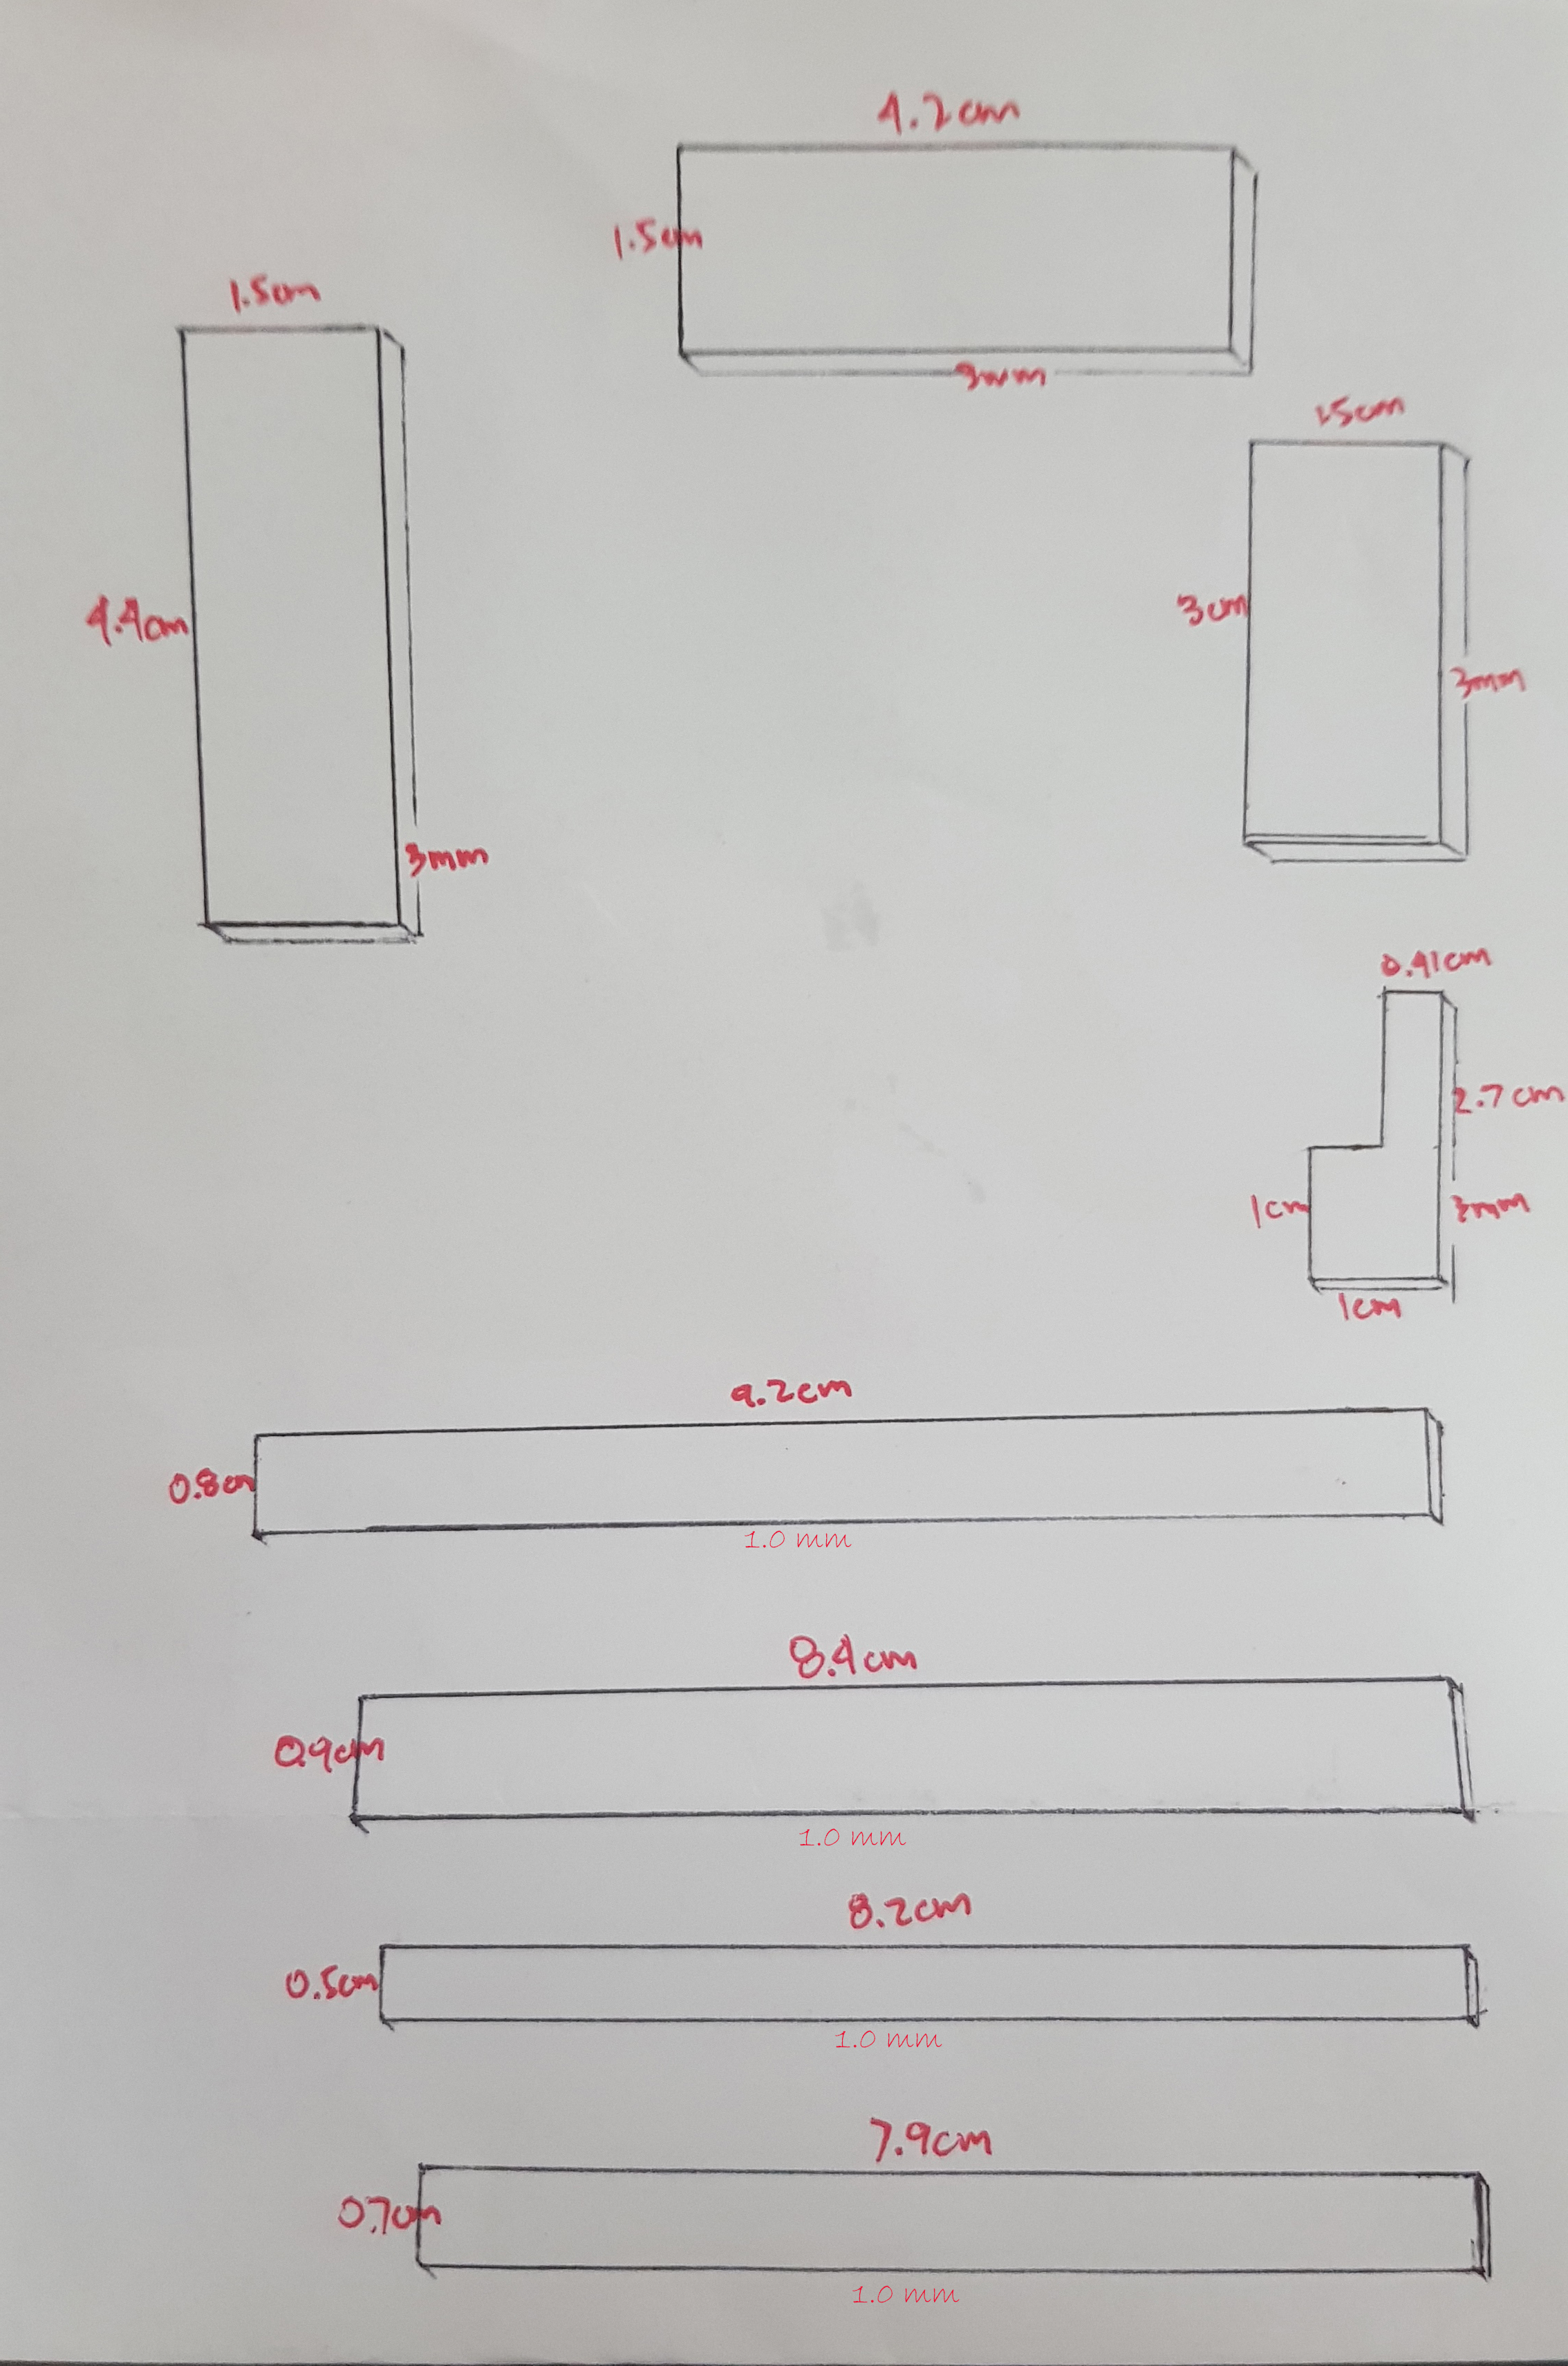 4.2cm
1.5cm
3mm
1.5cm
4.4cm
3mm
1.5cm
3cm
3mm
0.41cm
2.7cm
1cm
3mm
1cm
9.2cm
0.8cm
1.0 mm
8.4cm
0.9cm
1.0 mm
8.2cm
0.5cm
1.0 mm
7.9cm
0.7cm
1.0 mm